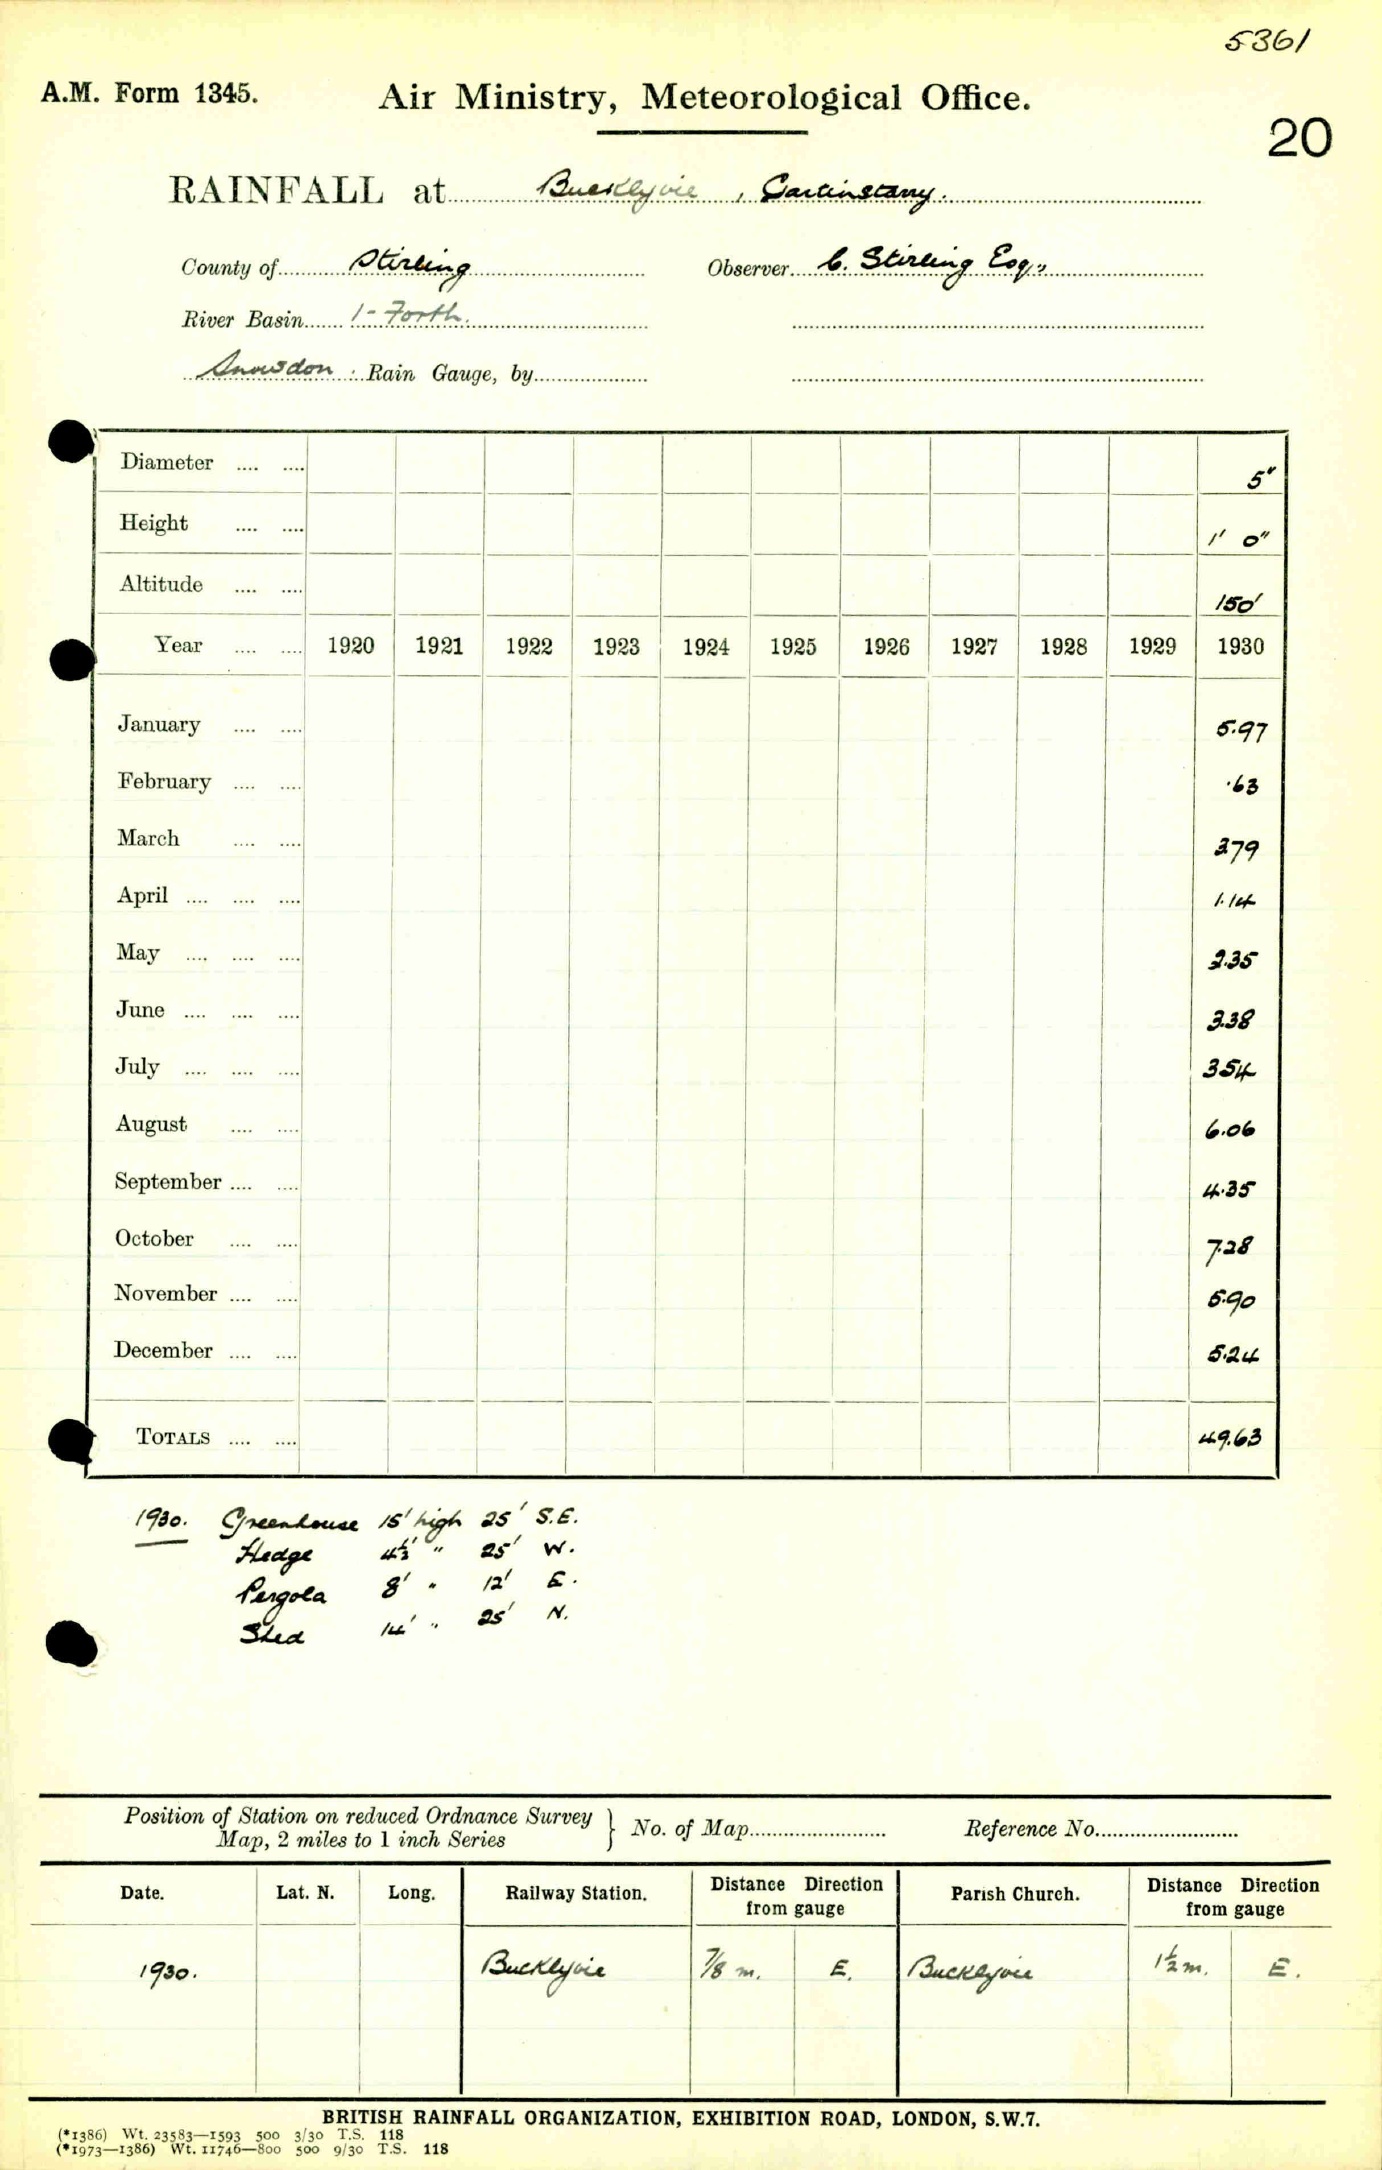 5361
A.M. Form 1345.
Air Ministry, Meteorological Office.
20
RAINFALL at Bucklyvie, Gartinstarry.
County of Stirling Observer C. Stirling Esq.,
River Basin 1 - Forth.
Snowdon Rain Gauge, by
Diameter 5"
Height 1' 0"
Altitude 150'
Year 1920 1921 1922 1923 1924 1925 1926 1927 1928 1929 1930
January 5.97
February .63
March 3.79
April 1.14
May 2.35
June 3.38
July 3.54
August 6.06
September 4.35
October 7.28
November 5.90
December 5.24
TOTALS 49.63
1930. Greenhouse 15' high 25' S.E.
Hedge 4½' " 25' W.
Pergola 8' " 12' E.
Shed 14' " 25' N.
Position of Station on reduced Ordnance Survey
Map, 2 miles to 1 inch Series } No. of Map Reference No.
Date. Lat. N. Long. Railway Station. Distance Direction from gauge Parish Church. Distance Direction from gauge
1930. Bucklyvie 7/8 m. E. Bucklyvie 1½ m. E.
BRITISH RAINFALL ORGANIZATION, EXHIBITION ROAD, LONDON, S.W.7.
(*1386) Wt. 23583—1593 500 3/30 T.S. 118
(*1973—1386) Wt. 11746—800 500 9/30 T.S. 118